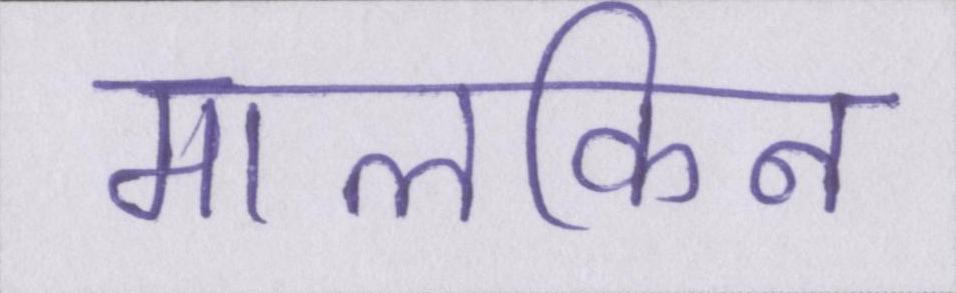 मालकिन